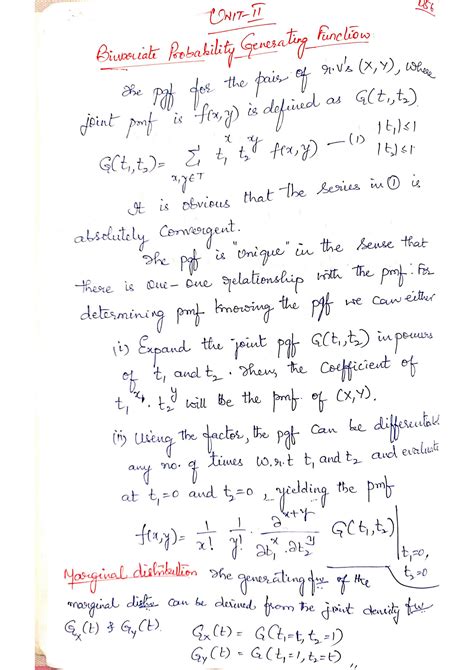 UNIT-II
186
Bivariate Probability Generating Function
The pgf for the pair of r.v's (X,Y), whose
joint pmf is f(x,y) is defined as G(t₁,t₂)
G(t₁,t₂) = Σ t₁ˣ t₂ʸ f(x,y) —(1) |t₁|≤1
x,y∈T |t₂|≤1
It is obvious that the series in ① is
absolutely Convergent.
The pgf is "unique" in the sense that
there is one-one relationship with the pmf. For
determining pmf knowing the pgf we can either
(i) Expand the joint pgf G(t₁,t₂) in powers
of t₁ and t₂. Then, the Coefficient of
t₁ˣ. t₂ʸ will be the pmf of (X,Y).
(ii) Using the factor, the pgf can be differentiable
any no. of times w.r.t t₁ and t₂ and evaluate
at t₁=0 and t₂=0, yielding the pmf
f(x,y) = 1/x! 1/y! . ∂ˣ⁺ʸ/∂t₁ˣ.∂t₂ʸ G(t₁,t₂)| t₁=0,
t₂=0
Marginal distribution The generating of the
marginal can be derived from the joint density
Gx(t) & Gy(t). Gx(t) = G(t₁=t, t₂=1)
Gy(t) = G(t₁=1, t₂=t)